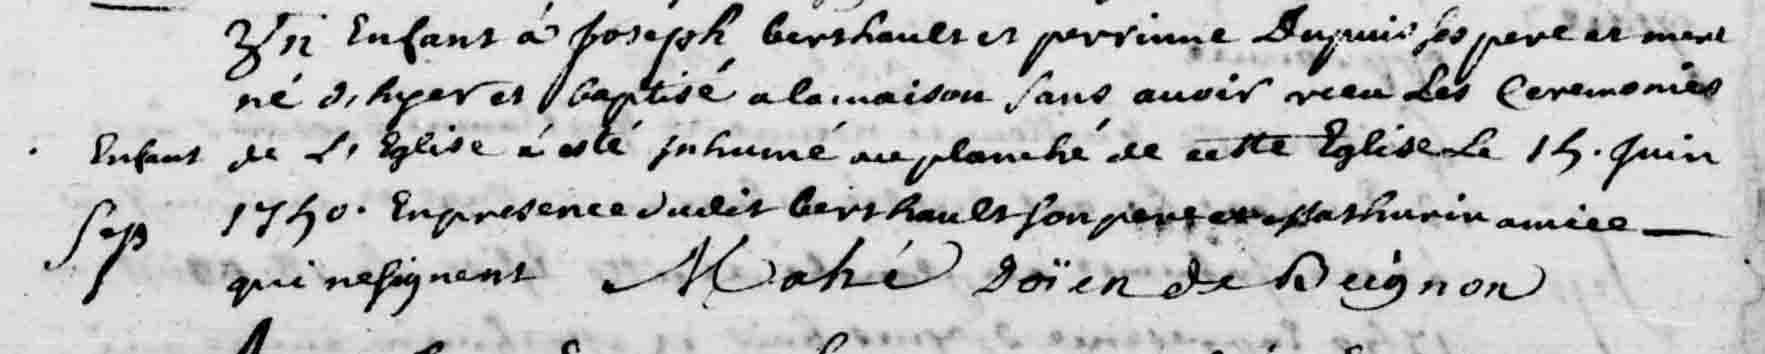 Un Enfant à Joseph berthault et perrinne Dupuis ses pere et mere
né d'hyer et baptisé a la maison sans avoir receu Les Ceremonies
Enfant de L'Eglise à esté inhumé au planché de cette Eglise Le 15. Juin
Sep 1750. En presence dudit berthault son pere et Mathurin amice
qui ne signent Mahé Doïen de Beignon